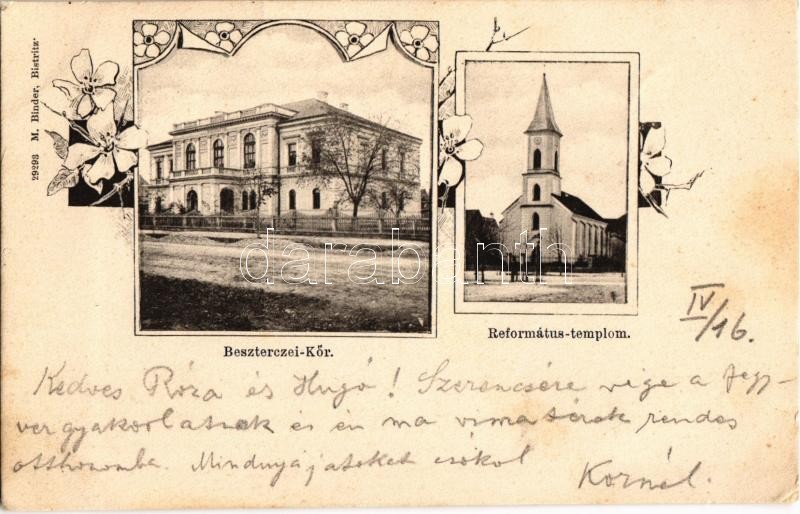 29293 M. Binder, Bistritz.
darabanth
Beszterczei-Kőr.
Református-templom.
IV/16.
Kedves Róza és Hugó! Szerencsére vége a fegy-
vergyakorlatnak és én ma visszatérek rendes
otthonomba. Mindnyájatokat csókol
Kornél.